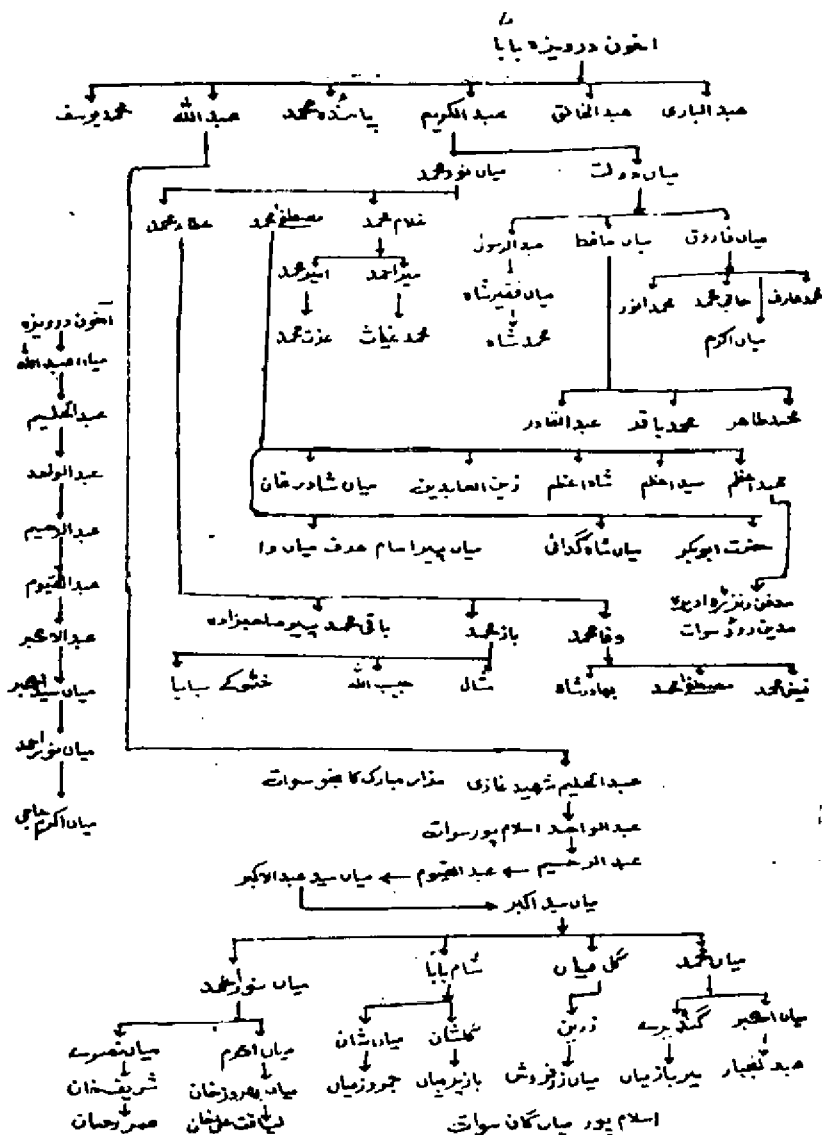 اخون درویزہ بابا
عبدالباری عبدالخالق عبدالکریم پائندہ محمد عبداللہ محمد یوسف
میاں دولت میاں نور محمد
میاں فاروق میاں حافظ عبدالرسول غلام محمد مصطفیٰ محمد عطاء محمد
محمد عارف حاجی محمد محمد انور میاں فقیر شاہ میر احمد امیر محمد
میاں اکرم محمد شاہ محمد غیاث عزت محمد
محمد طاہر محمد باقر عبدالقادر
محمد اعظم سید اعظم شاہ اعظم زین العابدین میاں شادر خان
حضرت ابوبکر میاں شاہ گدائی میاں پیر امام عرف میاں دا
مدفن
مدین روڈ سوات
وفا محمد باز محمد باقی محمد پیر صاحبزادہ
فیض محمد مصطفیٰ محمد بہادر شاہ مثال حبیب اللہ بابا
آخون درویزہ
میاں عبداللہ
عبدالحلیم
عبدالواحد
عبدالرحیم
عبدالقیوم
عبدالاکبر
میاں سید اکبر
میاں نور احمد
میاں اکرم حاجی
عبدالحلیم شہید غازی مزار مبارک کانجو سوات
عبدالواحد اسلام پور سوات
عبدالرحیم عبدالقیوم میاں سید عبدالاکبر
میاں سید اکبر
میاں محمد گل میاں شام بابا میاں نور احمد
میاں اکبر زرین گلشان میاں شان میاں اکرم میاں نصرے
عبدالجبار میر باز میاں میاں زر فروش بازیر میاں جمروز میاں میاں بہروز خان شریف خان
لیاقت علی خان عمر رحمان
اسلام پور میاں گان سوات